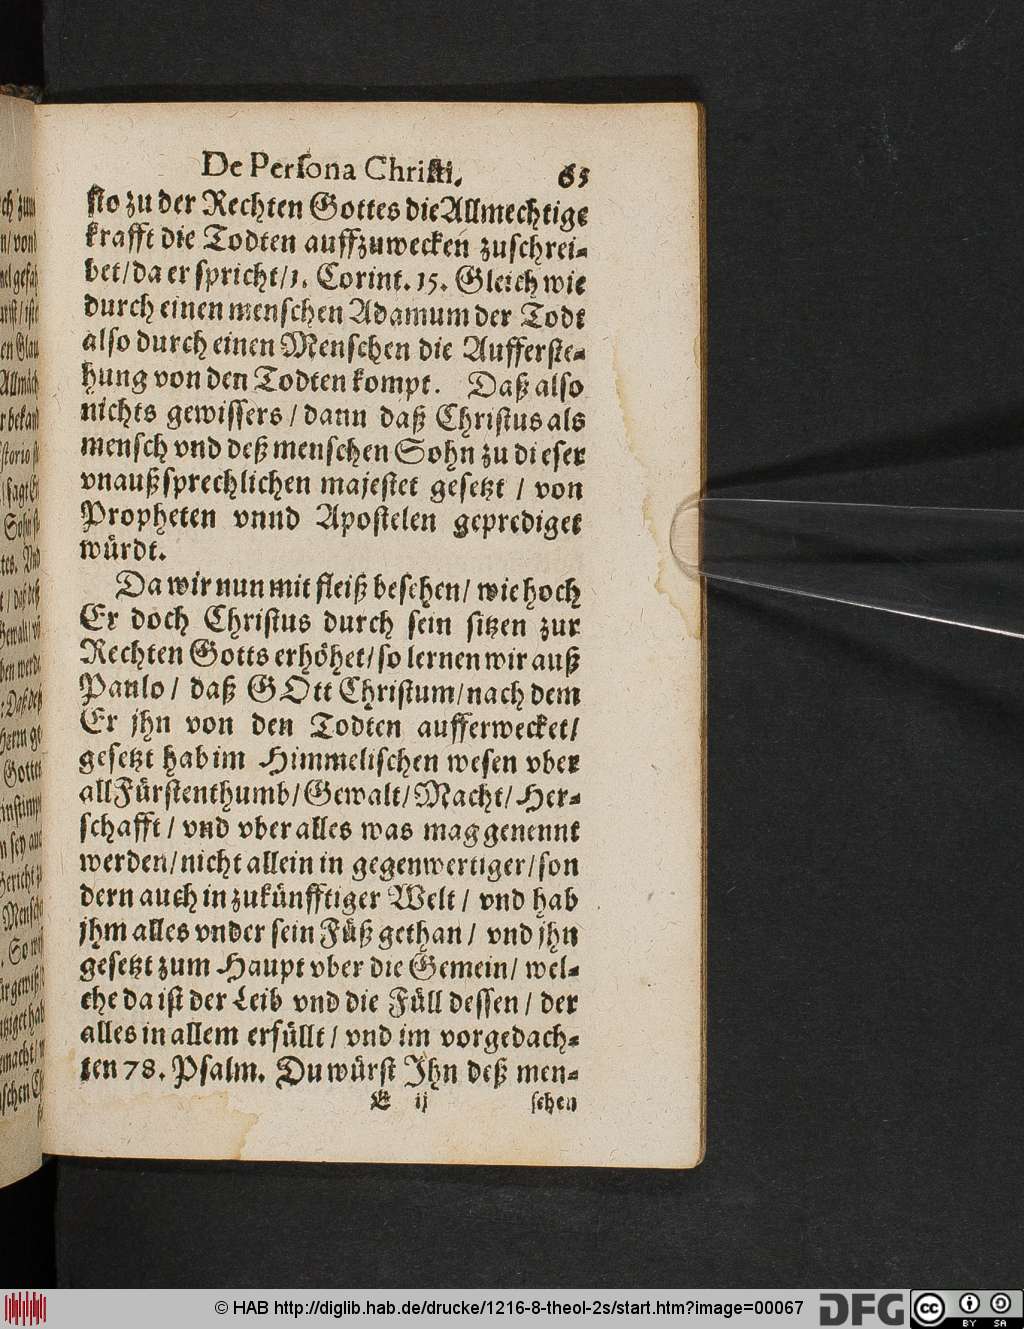 De Persona Christi. 65
sto zu der Rechten Gottes die Allmechtige
krafft die Todten auffzuwecken zuschrei-
bet/ da er spricht/ 1. Corint. 15. Gleich wie
durch einen menschen Adamum der Todt
also durch einen Menschen die Aufferste-
hung von den Todten kompt. Daß also
nichts gewissers / dann daß Christus als
mensch vnd deß menschen Sohn zu dieser
vnaußsprechlichen majestet gesetzt / von
Propheten vnnd Apostelen geprediget
würdt.
Da wir nun mit fleiß besehen/ wie hoch
Er doch Christus durch sein sitzen zur
Rechten Gotts erhöhet/ so lernen wir auß
Paulo / daß GOtt Christum/ nach dem
Er jhn von den Todten aufferwecket/
gesetzt hab im Himmelischen wesen vber
all Fürstenthumb/ Gewalt/ Macht/ Her-
schafft / vnd vber alles was mag genennt
werden/ nicht allein in gegenwertiger/ son
dern auch in zukünfftiger Welt / vnd hab
jhm alles vnder sein Füß gethan / vnd jhn
gesetzt zum Haupt vber die Gemein/ wel-
che da ist der Leib vnd die Füll dessen / der
alles in allem erfüllt / vnd im vorgedach-
ten 78. Psalm. Du würst Jhn deß men-
E ij schen
© HAB http://diglib.hab.de/drucke/1216-8-theol-2s/start.htm?image=00067 DFG cc BY SA